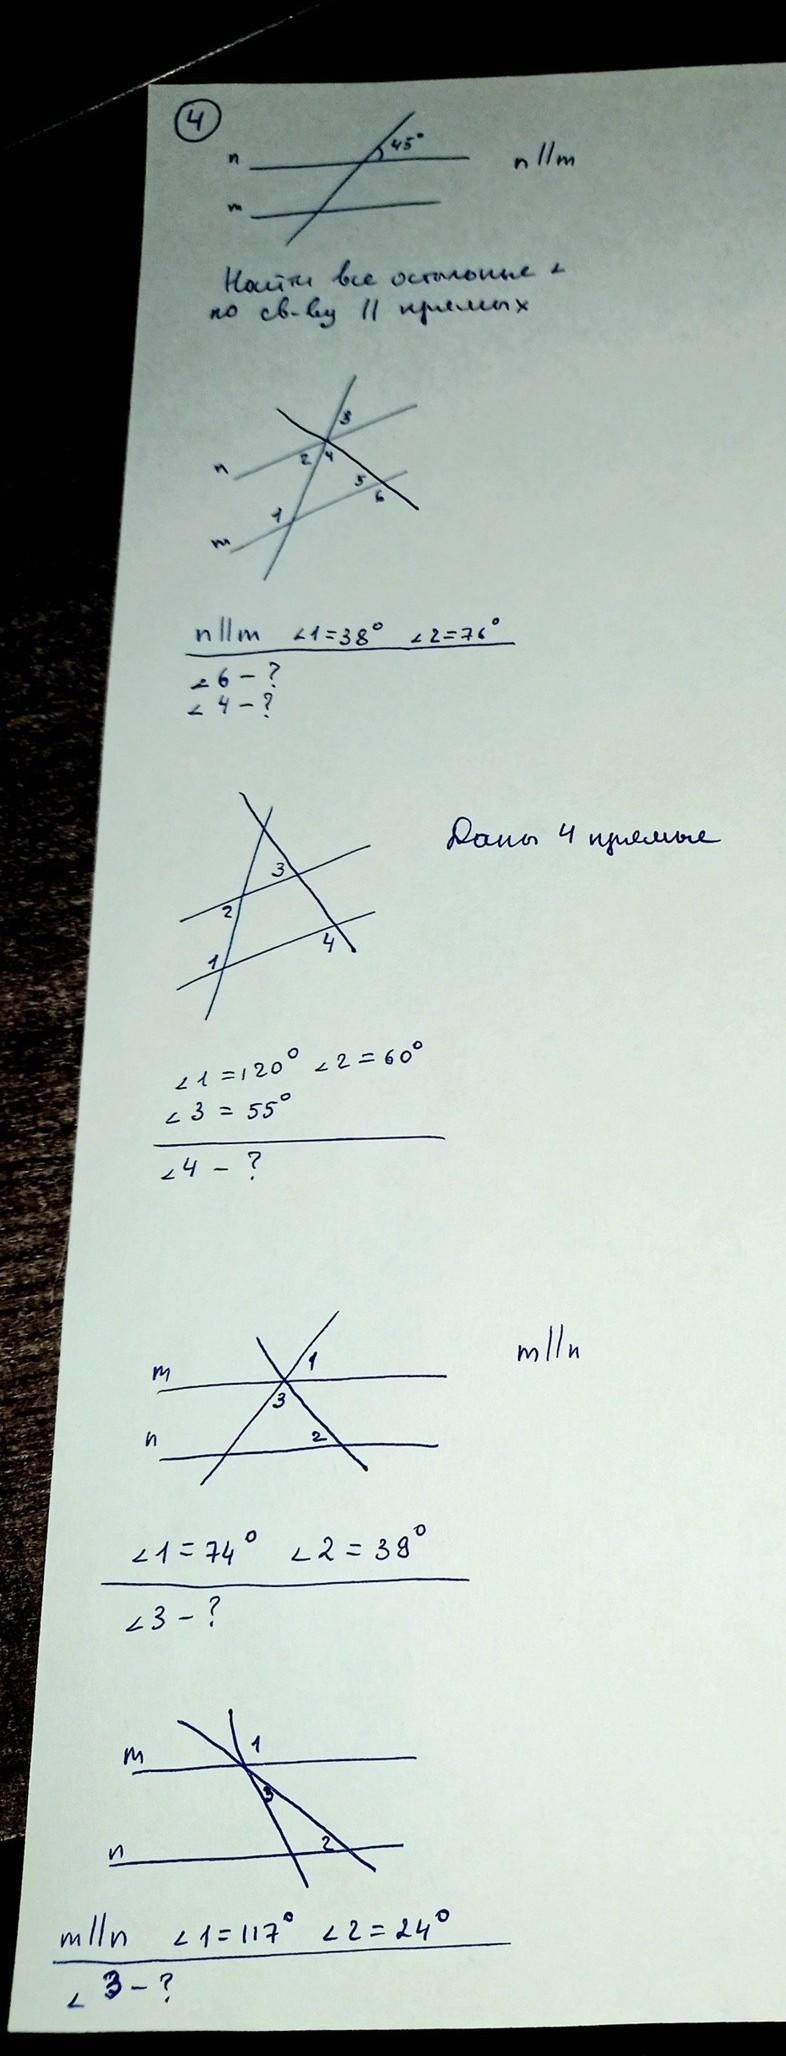 4
45°
n
n || m
m
Найти все остальные ∠
по св-ву || прямых
3
n
2 4
5
6
1
m
n || m ∠1 = 38° ∠2 = 76°
∠6 - ?
∠4 - ?
Даны 4 прямые
3
2
4
1
∠1 = 120° ∠2 = 60°
∠3 = 55°
∠4 - ?
m || n
1
m
3
n
2
∠1 = 74° ∠2 = 39°
∠3 - ?
1
m
3
2
n
m || n ∠1 = 117° ∠2 = 24°
∠3 - ?